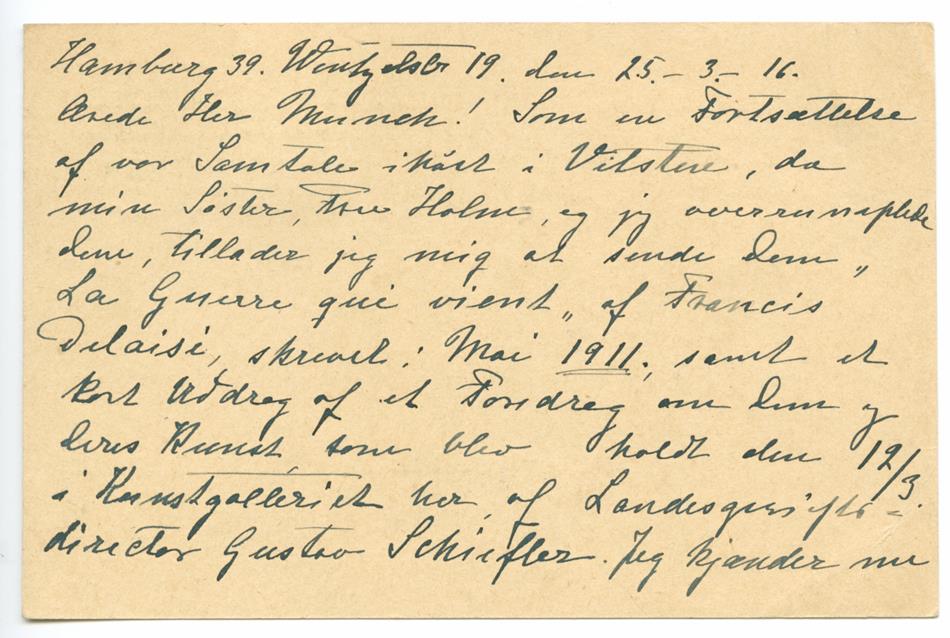 Hamburg 39. Wentzelstr 19. den 25.-3.-16.
Ærede Her Munch! Som en Fortsættelse
af vor Samtale ihöst i Vitsten, da
min Söster, Fru Holm, og jeg overrumplede
Dem, tillader jeg mig at sende Dem „
La Guerre qui vient„ af Francis
Delaisi, skrevet i Mai 1911., samt et
kort Uddrag af et Foredrag om Dem og
Deres Kunst som blev holdt den 12/3
i Kunstgalleriet her, af Landesgerichts-
director Gustav Schiefler. Jeg kjænder nu